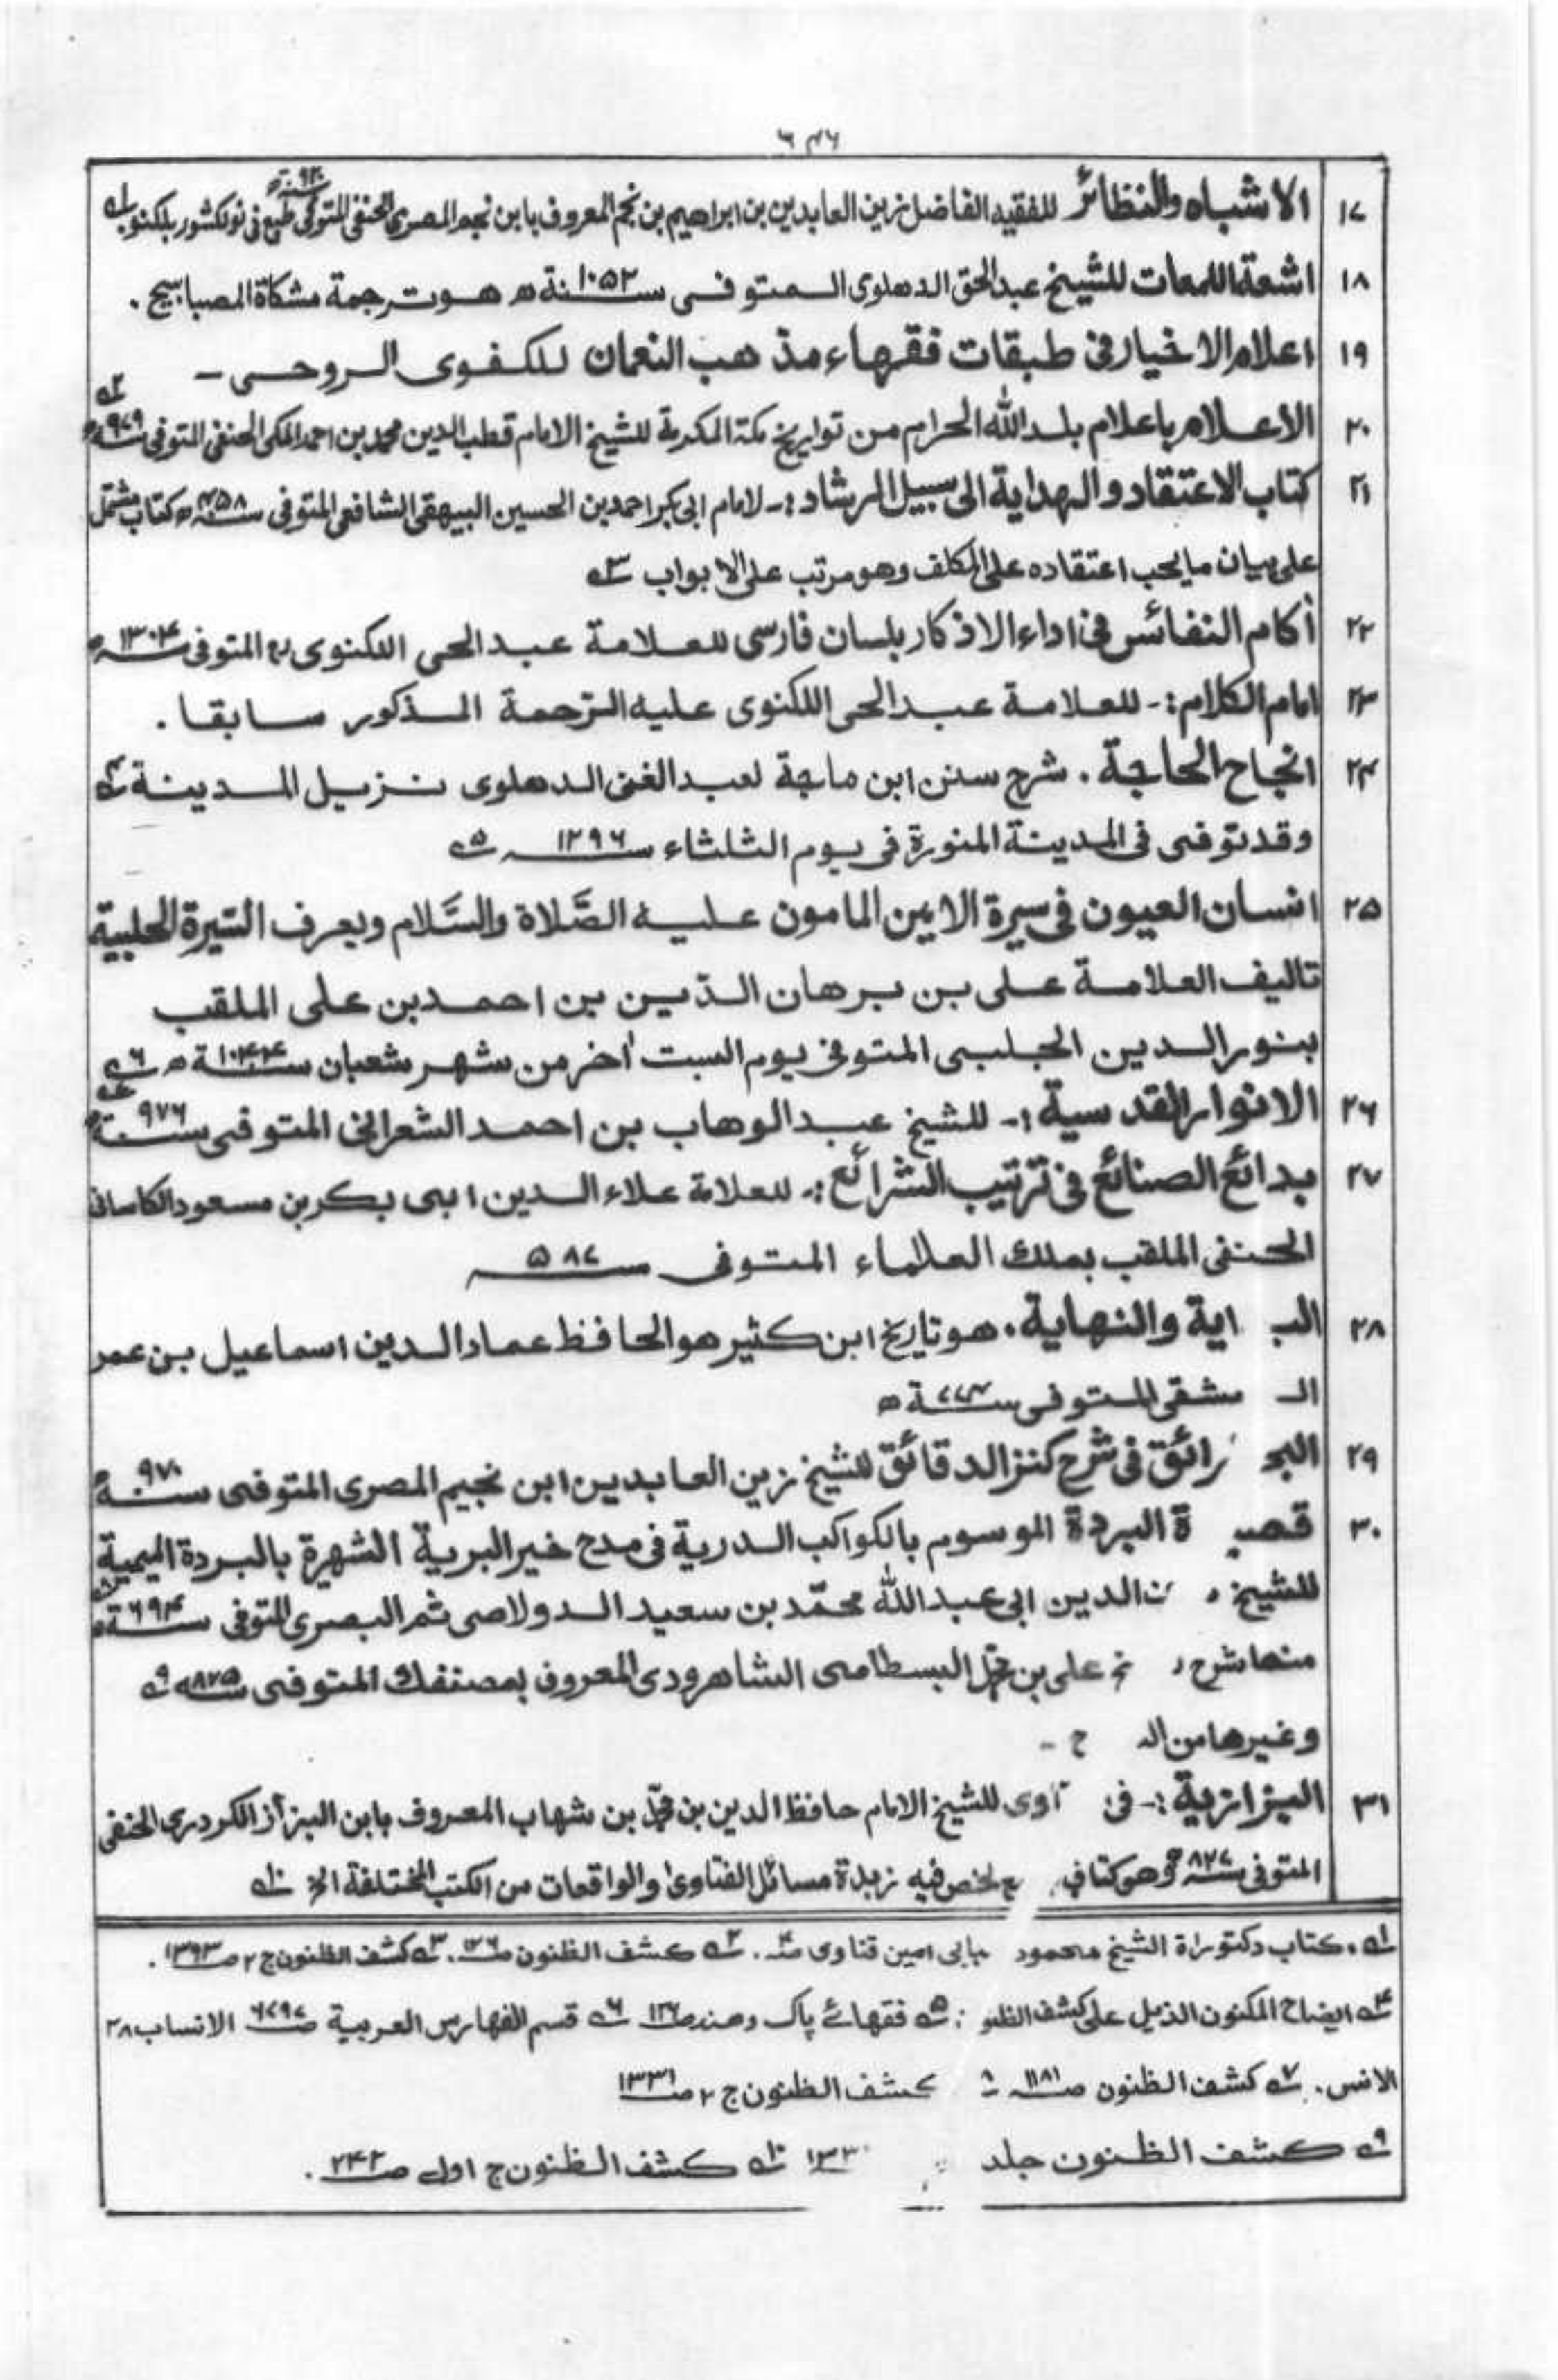 ٦٤٦
١٧ الاشباه والنظائر للفقيه الفاضل زين العابدين بن ابراهيم بن نجم المعروف بابن نجيم المصرى الحنفى المتوفى سنة ٩٧٠ه طبع فى نولكشور بلكنو ١ه
١٨ اشعة اللمعات للشيخ عبد الحق الدهلوى المتوفى سنة ١٠٥٢ه هو ترجمة مشكاة المصابيح .
١٩ اعلام الاخيار فى طبقات فقهاء مذهب النعمان للكفوى الروحى -
٢٠ الاعلام باعلام بلد الله الحرام من تواريخ مكة المكرمة للشيخ الامام قطب الدين محمد بن احمد المكى الحنفى المتوفى سنة ٩٧٩ه ٢ه
٢١ كتاب الاعتقاد والهداية الى سبيل الرشاد :- لامام ابى بكر احمد بن الحسين البيهقى الشافعى المتوفى سنة ٤٥٨ه كتاب مشتمل
على بيان ما يجب اعتقاده على المكلف وهو مرتب على الابواب ٣ه
٢٢ أكام النفائس فى اداء الاذكار بلسان فارسى للعلامة عبد الحى اللكنوى رح المتوفى سنة ١٣٠٤ه
٢٣ امام الكلام :- للعلامة عبد الحى اللكنوى عليه الترجمة المذكور سابقا .
٢٤ انجاح الحاجة . شرح سنن ابن ماجة لعبد الغنى الدهلوى نزيل المدينة ٤ه
وقد توفى فى المدينة المنورة فى يوم الثلثاء سنة ١٢٩٦ ٥ه
٢٥ انسان العيون فى سيرة الامين المامون عليه الصَّلاة والسَّلام ويعرف السّيرة الحلبية
تاليف العلامة على بن برهان الدّين بن احمد بن على الملقب
بنور الدين الحلبى المتوفى يوم السبت أخر من شهر شعبان سنة ١٠٤٤ه ٦ه
٢٦ الانوار القدسية :- للشيخ عبد الوهاب بن احمد الشعرانى المتوفى سنة ٩٧٦ه ٧ه
٢٧ بدائع الصنائع فى ترتيب الشرائع :- للعلامة علاء الدين ابى بكر بن مسعود الكاسانى
الحنفى الملقب بملك العلماء المتوفى سنة ٥٨٧
٢٨ الب اية والنهاية . هو تاريخ ابن كثير هو الحافظ عماد الدين اسماعيل بن عمر
الـ مشقى المتوفى سنة ٧٧٤ه
٢٩ البحـ رائق فى شرح كنز الدقائق للشيخ زين العابدين ابن نجيم المصرى المتوفى سنة ٩٧٠ه
٣٠ قصيـ ة البردة الموسوم بالكواكب الدرية فى مدح خير البرية الشهيرة بالبردة الميمية
للشيخ ن الدين ابى عبد الله محمّد بن سعيد الدولاصى ثم البصرى المتوفى سنة ٦٩٤ه ٨ه
منها شرح على بن محمّد البسطامى الشاهرودى المعروف بمصنفك المتوفى سنة ٨٧٥ه ٩ه
وغيرها من الـ ح -
٣١ البزازية :- فى اوى للشيخ الامام حافظ الدين بن محمّد بن شهاب المعروف بابن البزأز الكردرى الحنفى
المتوفى سنة ٨٢٧ه وهو كتاب ع لخص فيه زبدة مسائل الفتاوى والواقعات من الكتب المختلفة الخ ١٠ه
١ه . كتاب دكتوراة الشيخ محمود ببابى امين قناوى صـ٤ . ٢ه كشف الظنون صـ١٢٦ . ٣ه كشف الظنون ج ٢ صـ١٣٩٣ .
٤ه ايضاح المكنون الذيل على كشف الظنو : ٥ه فقهائے پاک و هند صـ١٢٦ ٦ه قسم الفهارس العربية صـ٦٧٩٧ الانساب ٢٨
الانس . ٧ه كشف الظنون صـ١١٨١ ٨ كشف الظنون ج ٢ صـ١٣٣١
٩ه كشف الظنون جلد ١٣٣٠ ١٠ه كشف الظنون ج اول صـ٢٤٢ .